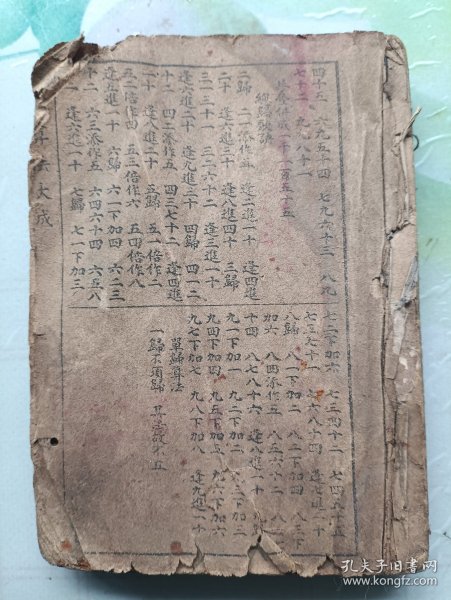 四十五 六九五十四 七九六十三 八九
七十二 九九八十一
共叅併成一千一百五十五
總歸歌訣
二歸 二一添作五 逢二進一十 逢四進
二十 逢六進三十 逢八進四十 三歸
三一三十一 三二六十二 逢三進一十
逢六進二十 逢九進三十 四歸 四一二
十二 四二添作五 四三七十二 逢四進
一十 逢八進二十 五歸 五一倍作二
五二倍作四 五三倍作六 五四倍作八
逢五進一十 六歸 六一下加四 六二三
十二 六三添作五 六四六十四 六五八
十二 逢六進一十 七歸 七一下加三
算法大成
七二下加六 七三四十二 七四五十五
七五七十一 七六八十四 逢七進一十
八歸 八一下加二 八二下加四 八三下
加六 八四添作五 八五六十二 八六七
十四 八七八十六 逢八進一十 九歸
九一下加一 九二下加二 九三下加三
九四下加四 九五下加五 九六下加六
九七下加七 九八下加八 逢九進一十
單歸算法
一歸不須歸 其
孔夫子旧书网
www.kongfz.com